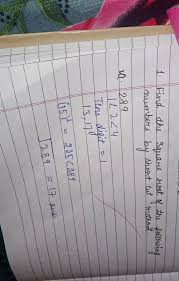 1. Find the square root of the following
numbers by short cut method?
289
1 < 2 < 4
Tens digit = 1
13, 17
(15)² = 225 < 289
√289 = 17